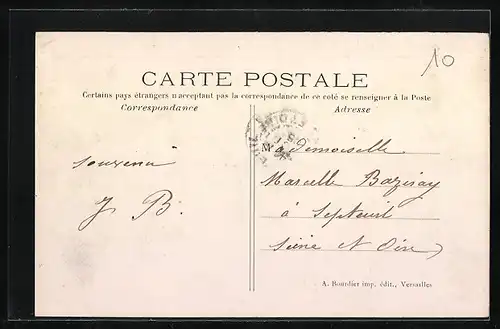 10
CARTE POSTALE
Certains pays étrangers n'acceptant pas la correspondance de ce coté se renseigner à la Poste
Correspondance
Adresse
Mademoiselle
souvenir
Marcelle
J B.
à Septeuil
Seine et Oise
A. Bourdier imp. édit., Versailles